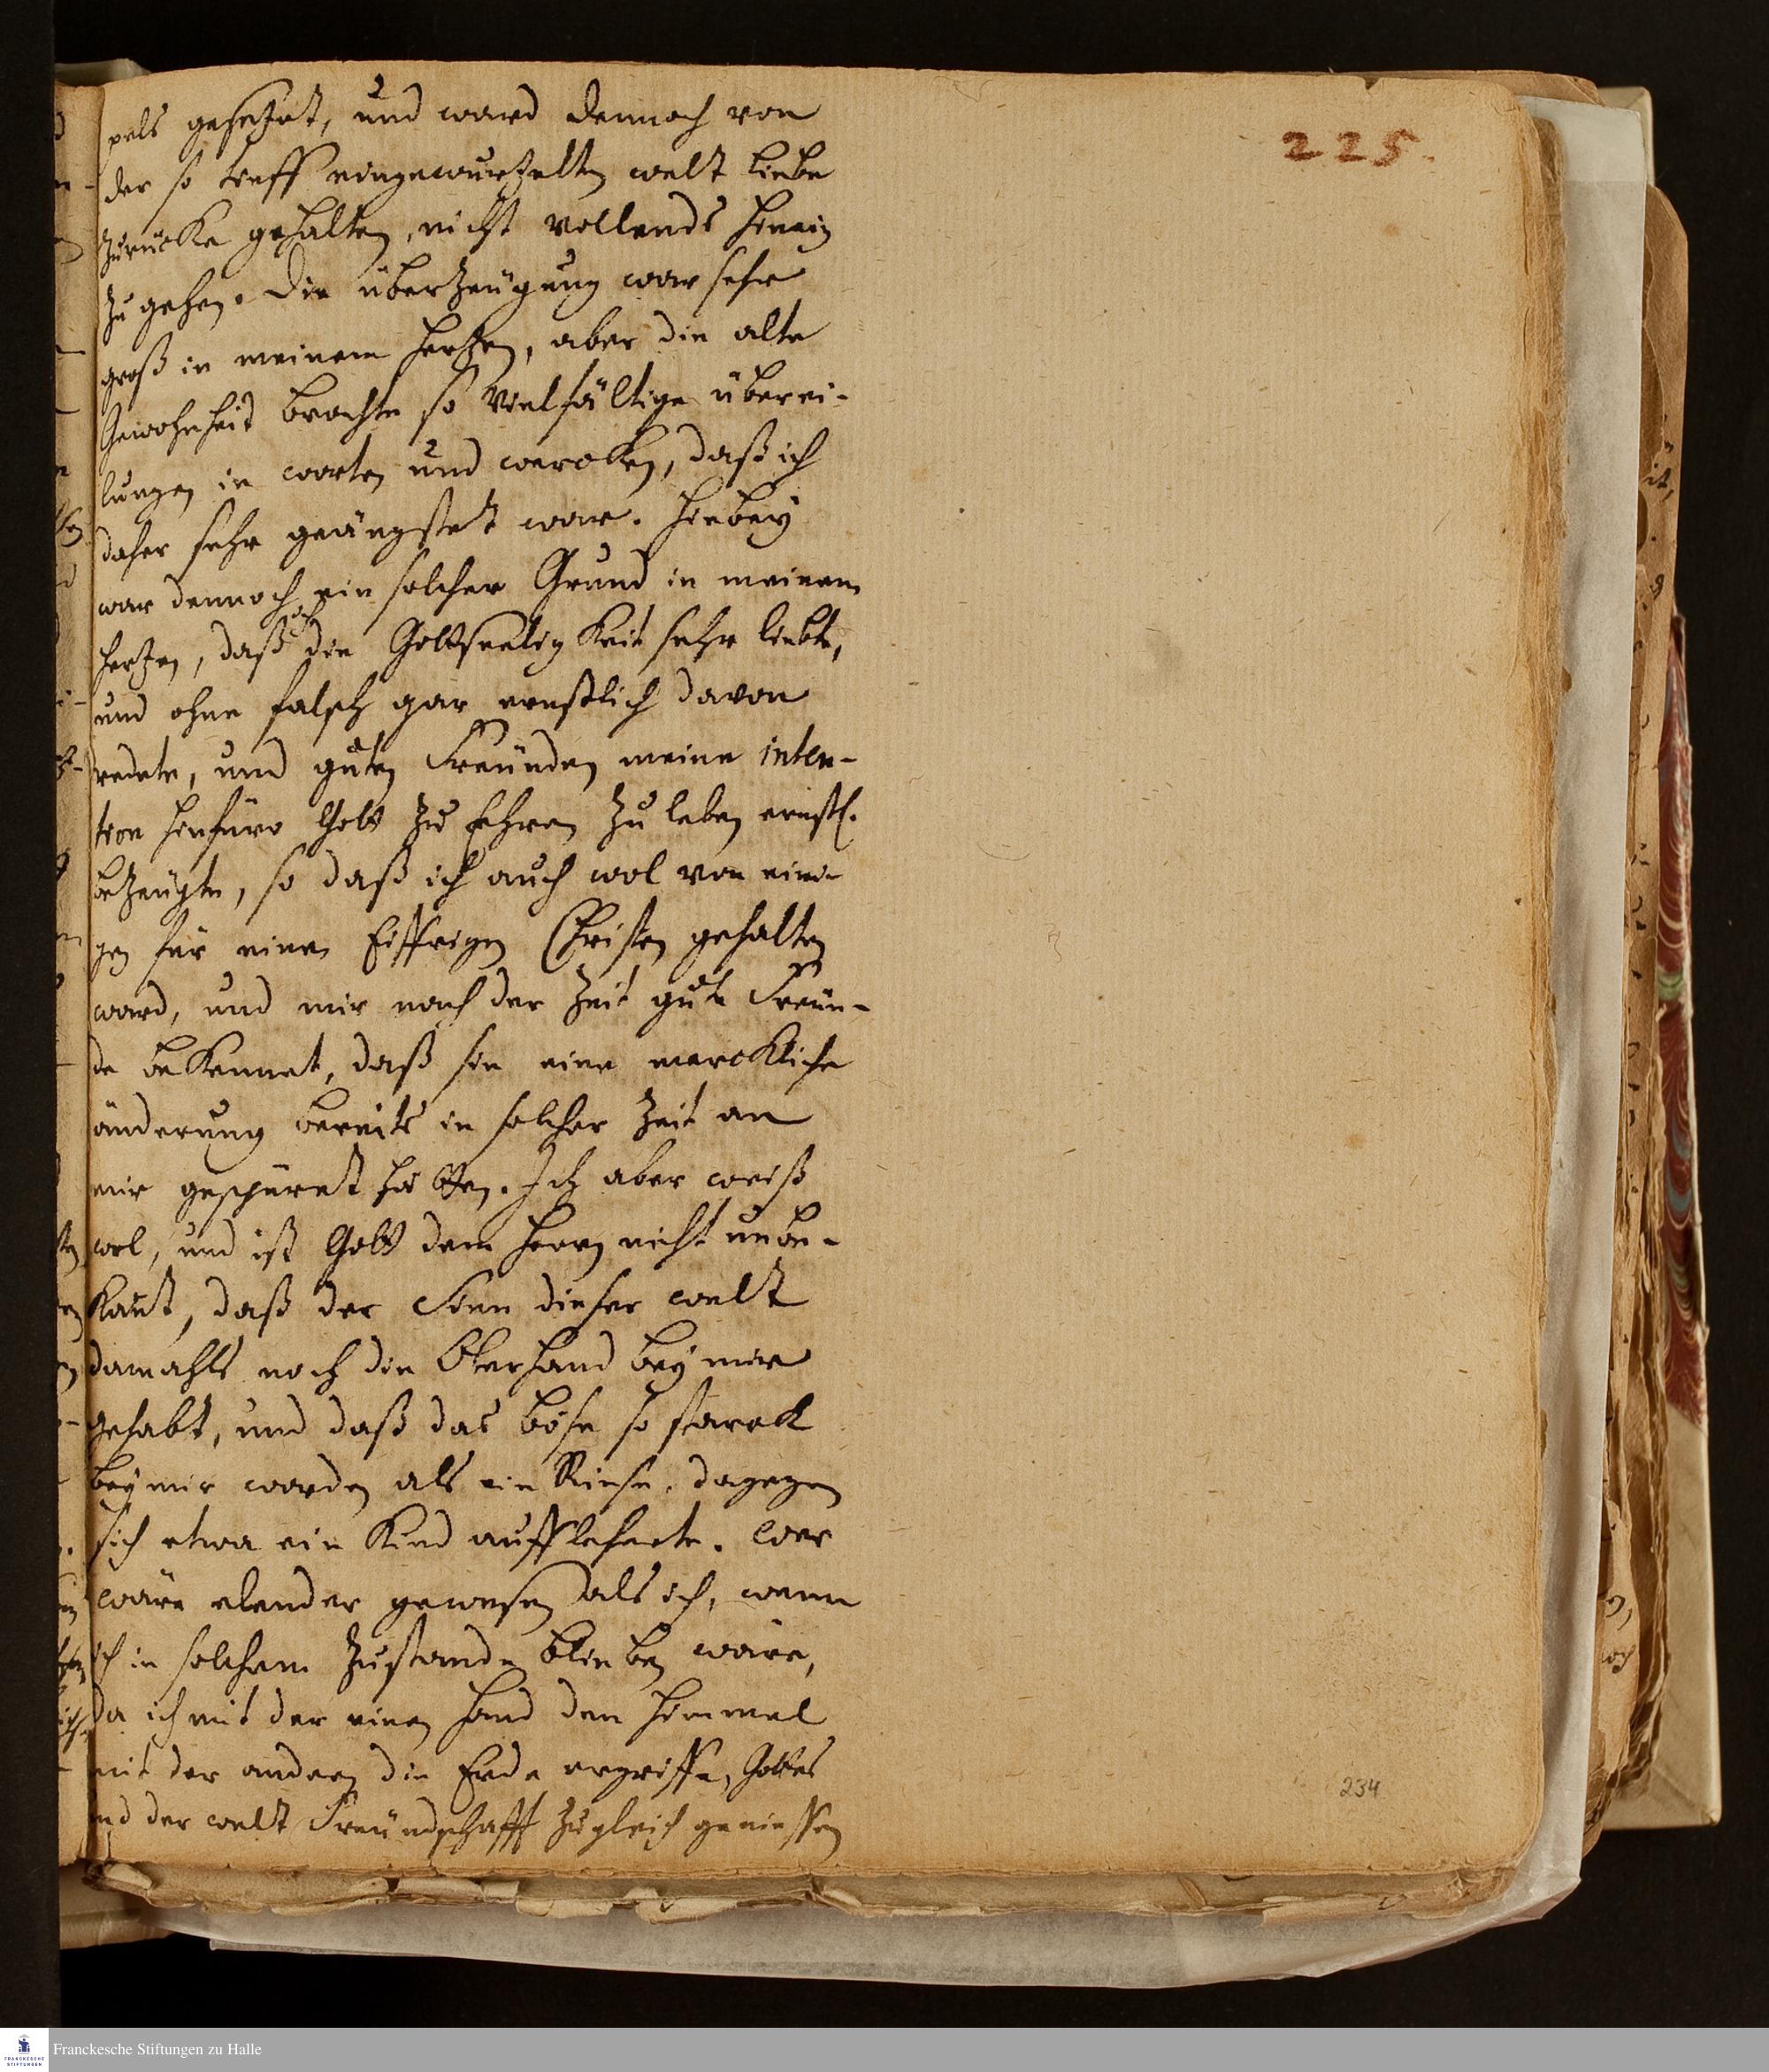 225.
pels gesetzet, und ward dennoch von
der so tieff eingewurtzelten welt liebe
zurücke gehalten, nicht vollends hinein
zu gehen. Die überzeugung war sehr
groß in meinem hertzen, aber die alte
Gewohnheit brachte so Vielfältige überei-
lungen in worten und wercken, daß ich
daher sehr geängstet war. Hiebey
war dennoch ein solcher Grund in meinem
hertzen, daß ich die Gottseeligkeit sehr liebte,
und ohne falsch gar ernstlich davon
redete, und guten Freunden meine inten-
tion hinfüro Gott zu Ehren zu leben ernstl.
bezeugte, so daß ich auch wol von eini-
gen für einen Eiffrigen Christen gehalten
ward, und mir nach der Zeit gute Freun-
de bekennet, daß sie eine merckliche
änderung bereits in solcher Zeit an
mir gespüret hätten. Ich aber weiß
wol, und ist Gott dem Herrn nicht unbe-
kant, daß der Sinn dieser welt
damahls noch die Oberhand bey mir
gehabt, und daß das böse so starck
bey mir worden als ein Riese, dagegen
sich etwa ein Kind aufflehnete. Wer
wäre elender gewesen als ich, wenn
ich in solchem Zustande blieben wäre,
da ich mit der einen Hand den Himmel
mit der andern die Erde ergriffe, Gottes
und der welt Freundschafft zugleich geniessen
234
Franckesche Stiftungen zu Halle